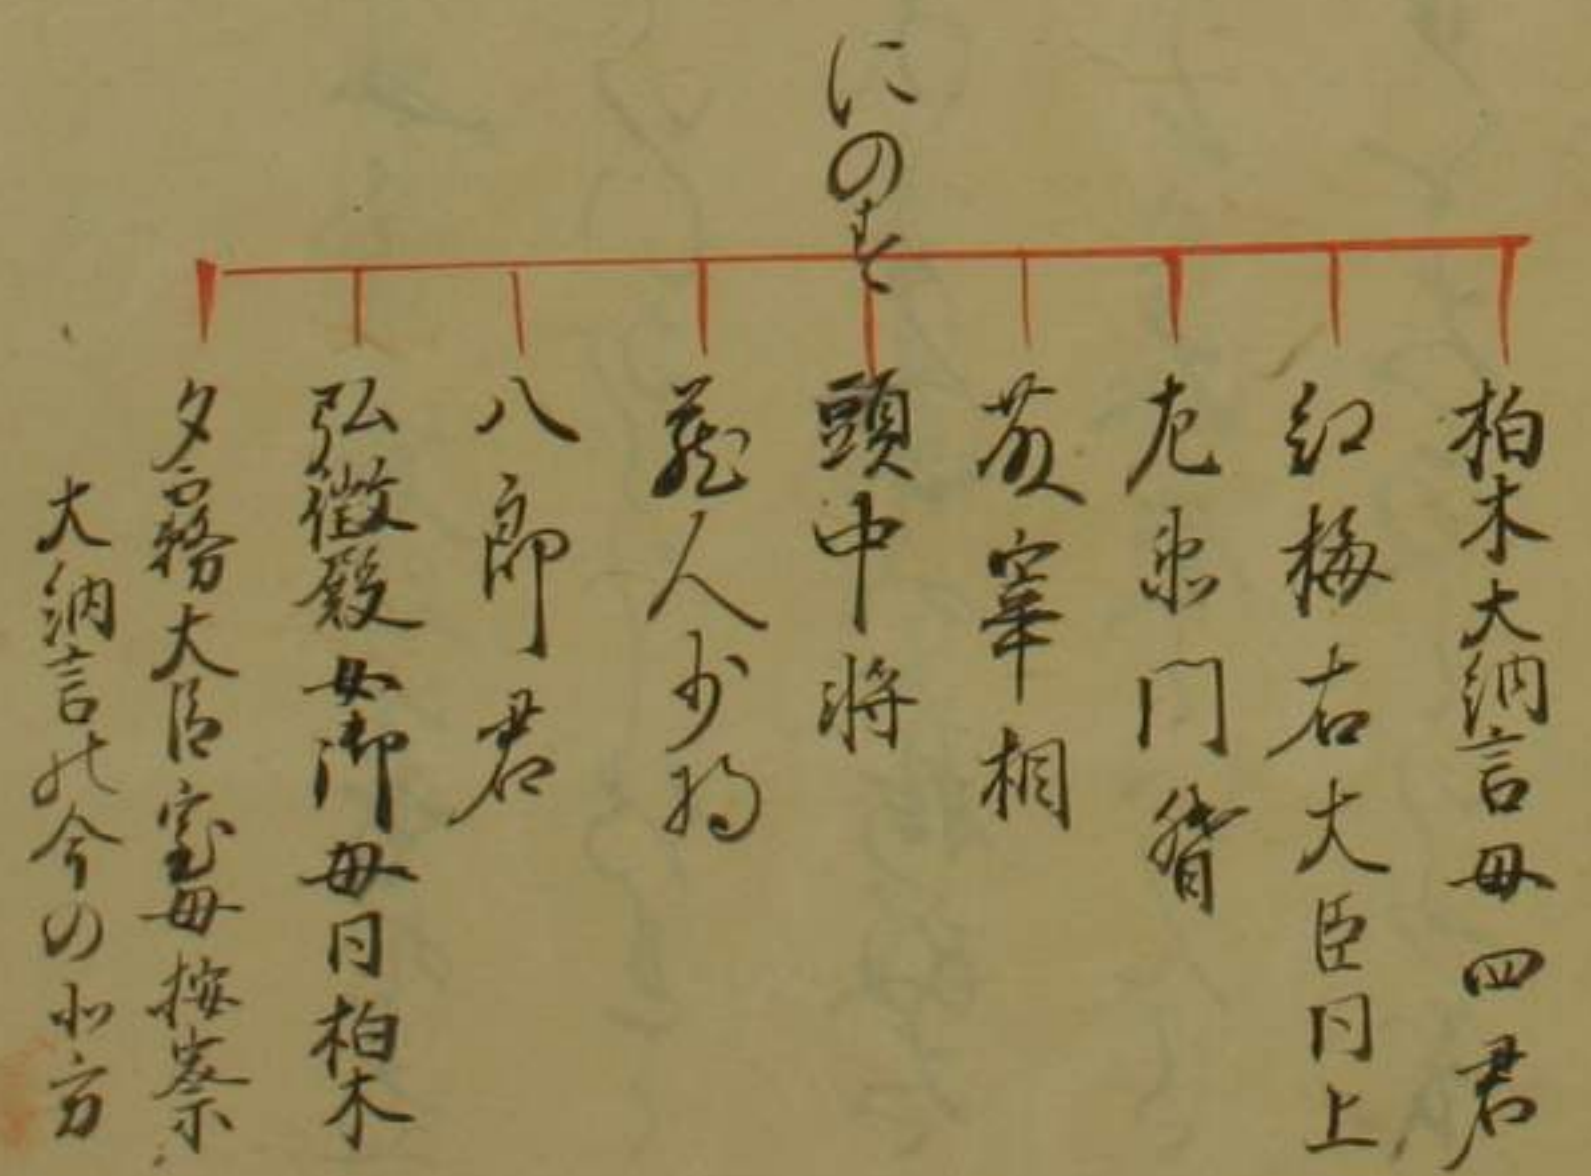 にのす
柏木大納言母四君
紅梅右大臣同上
左衛門督
藤宰相
頭中将
蔵人少将
八郎君
弘徽殿女御母同柏木
夕霧大臣室母按察
大納言の今の北方